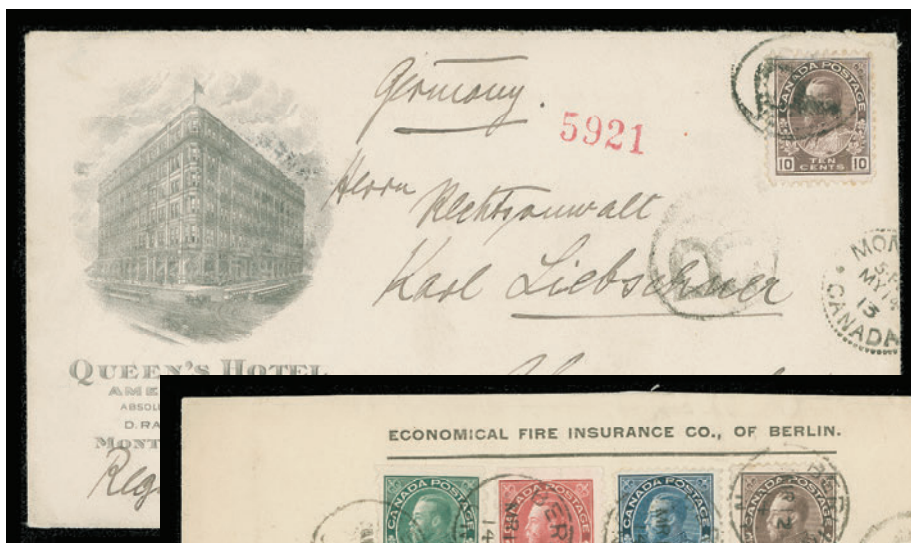 Germany.
5921
CANADA POSTAGE
10 TEN CENTS 10
Herrn
Rechtsanwalt
Karl Liebschner
MON
MY 14
13
CANADA
QUEEN'S HOTEL
AME
ABSOL
D. RA
MONT
Reg
ECONOMICAL FIRE INSURANCE CO., OF BERLIN.
CANADA POSTAGE
CANADA POSTAGE
CANADA POSTAGE
CANADA POSTAGE
BER
14